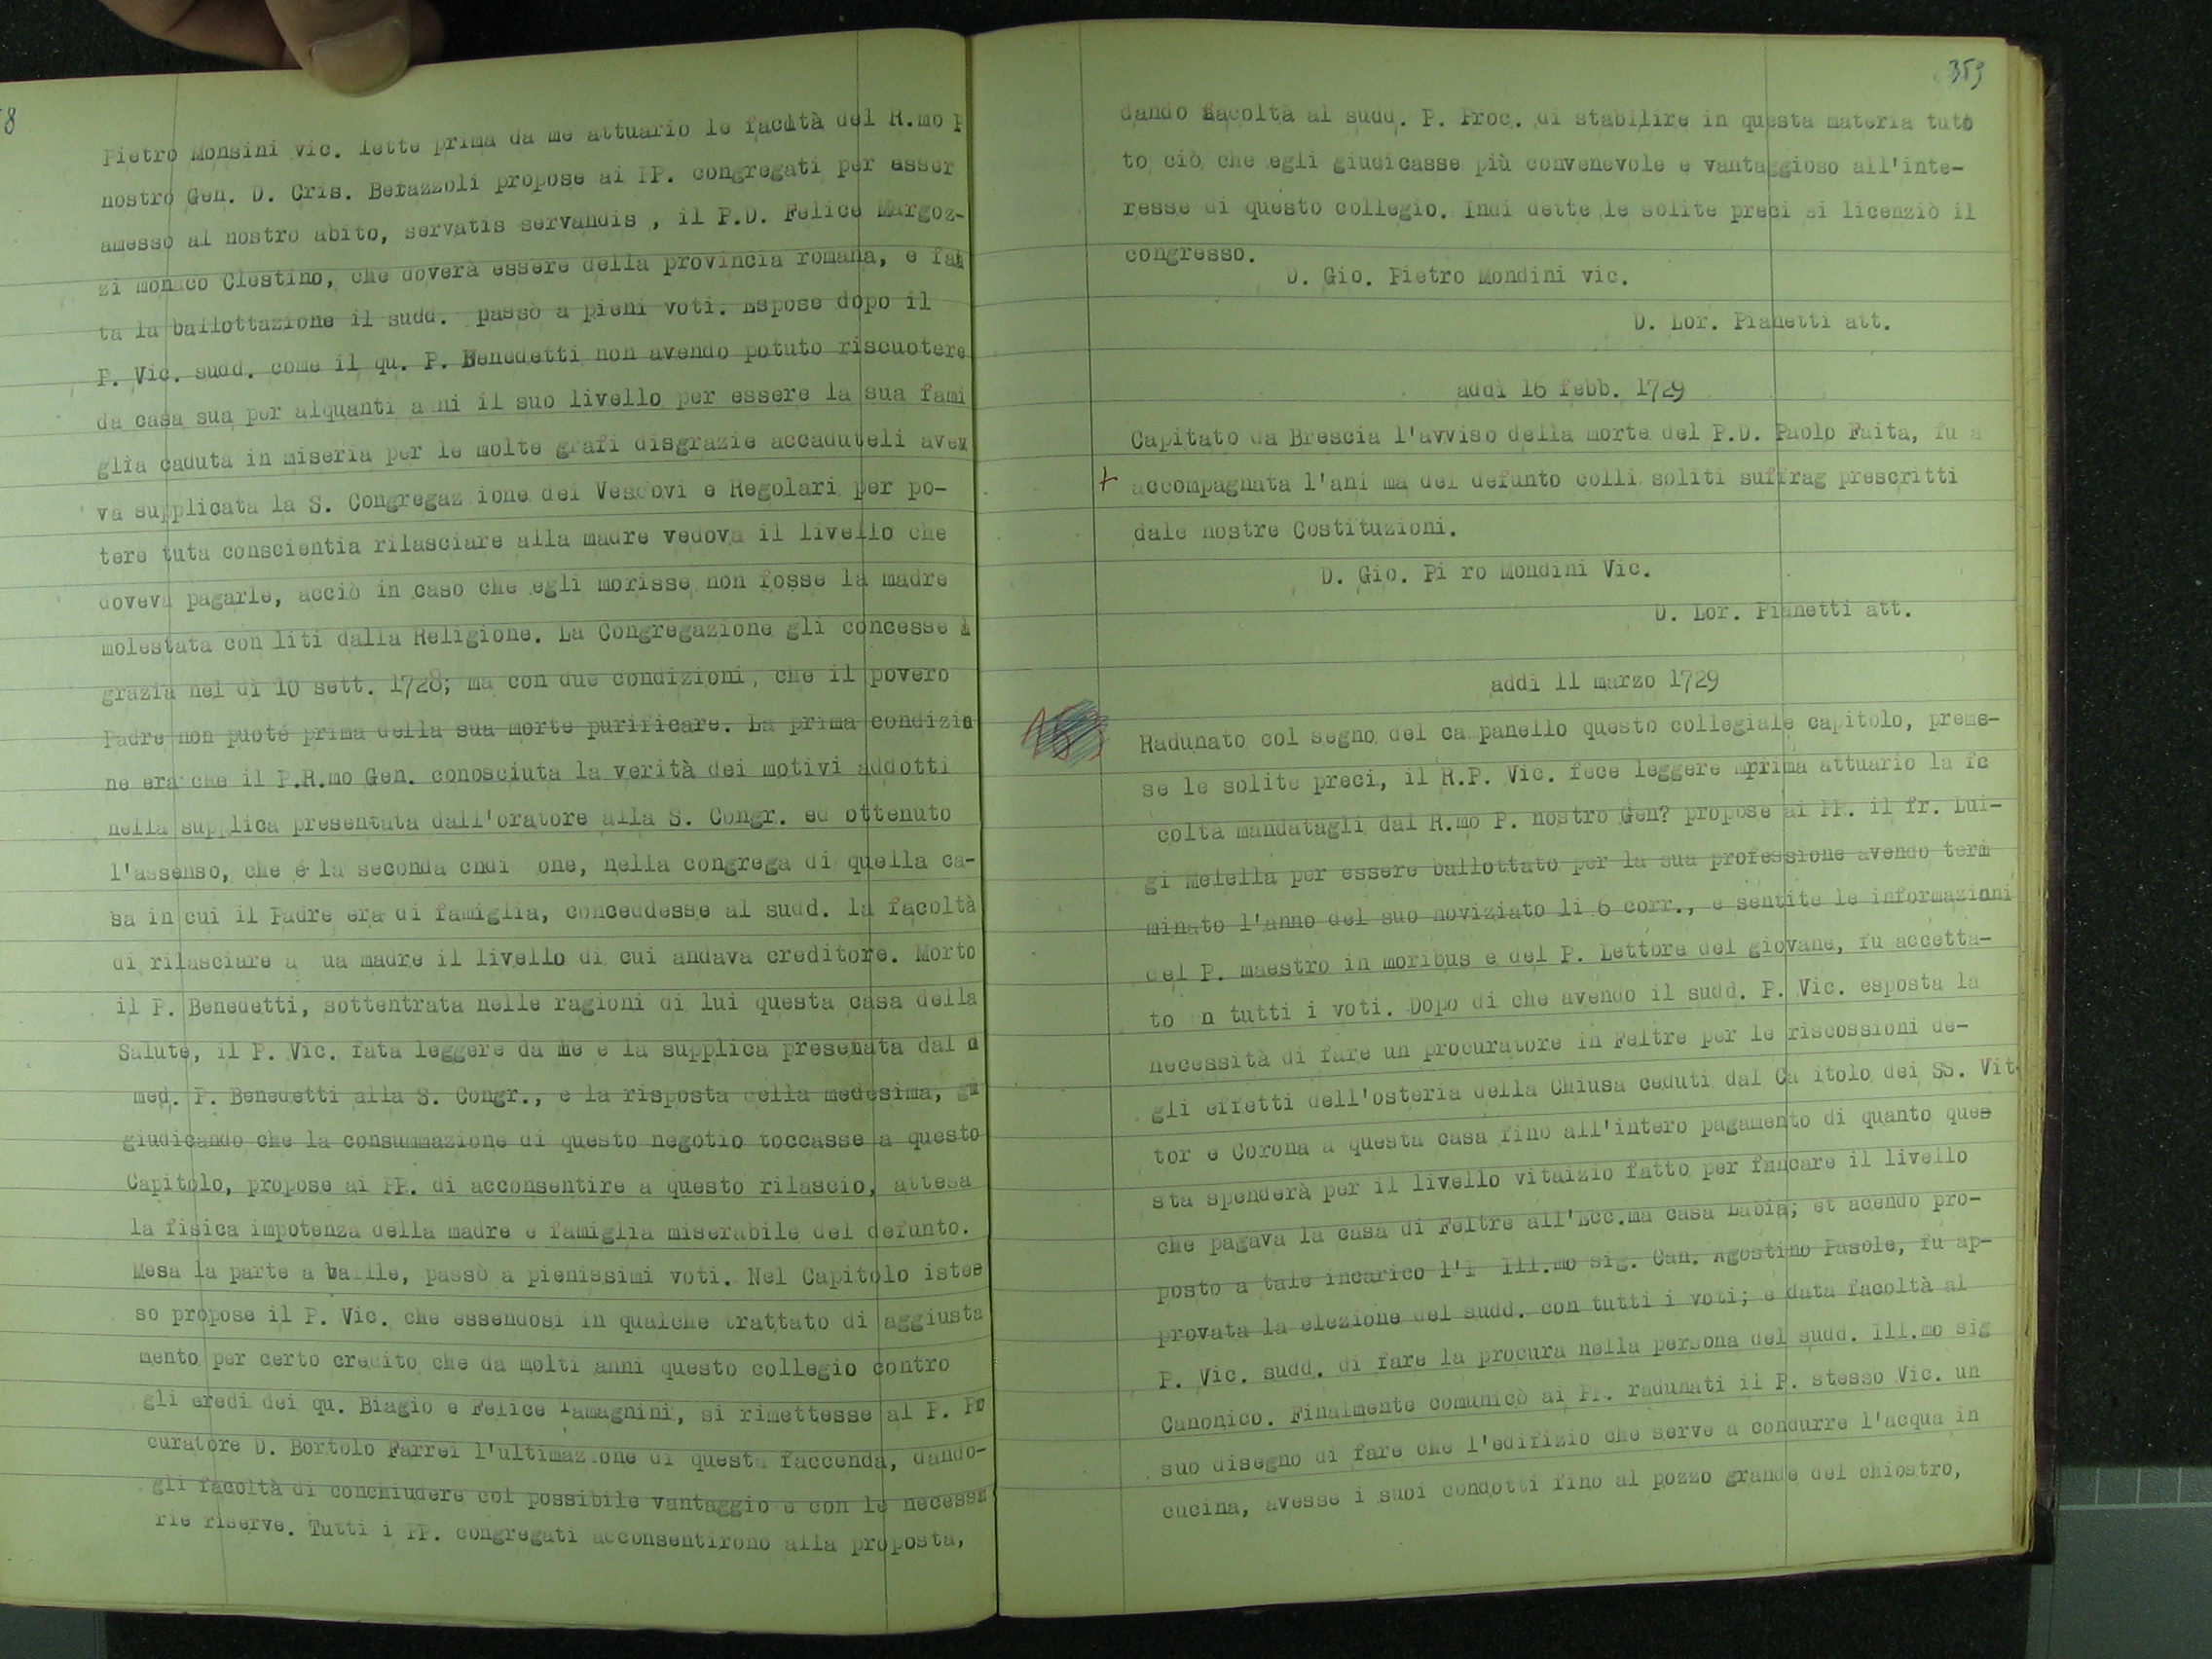 8
Pietro Monsini vic. lette prima da me attuario le facltà del R.mo P
nostro Gen. D. Cris. Berazzoli propose ai PP. congregati per esser
amesso al nostro abito, servatis servandis , il P.D. Felice Margoz-
zi monaco Clestino, che doverà essere della provincia romana, e fat
ta la ballottazione il sudd. passò a pieni voti. Espose dopo il
P. Vic. sudd. come il qu. P. Benedetti non avendo potuto riscuotere
da casa sua per alquanti anni il suo livello per essere la sua fami
glia caduta in miseria per le molte grafi disgrazie accaduteli ave
va supplicata la S. Congregaz ione dei Vescovi e Regolari per po-
tere tuta conscientia rilasciare alla madre vedova il livello che
doveva pagarle, acciò in caso che egli morisse non fosse la madre
molestata con liti dalla Religione. La Congregazione gli concesse l
grazia nel dì 10 sett. 1728; ma con due condizioni, che il povero
Padre non puoté prima della sua morte purificare. La prima condizio
ne era che il P.R.mo Gen. conosciuta la verità dei motivi addotti
nella supplica presentata dall'oratore alla S. Congr. ed ottenuto
l'assenso, che é la seconda cndi one, nella congrega di quella ca-
sa in cui il Padre era di famiglia, conceddesse al sudd. la facoltà
di rilasciare a ua madre il livello di cui andava creditore. Morto
il P. Benedetti, sottentrata nelle ragioni di lui questa casa della
Salute, il P. Vic. fata leggere da me e la supplica presentata dal
med. P. Benedetti alla S. Congr., e la risposta della medesima, gi
giudicando che la consummazione di questo negotio toccasse a questo
Capitolo, propose ai PP. di acconsentire a questo rilascio, attesa
la fisica impotenza della madre e famiglia miserabile del defunto.
Mesa la parte a ballle, passò a pienissimi voti. Nel Capitolo istes
so propose il P. Vic. che essendosi in qualche trattato di aggiusta
mento per certo credito che da molti anni questo collegio contro
gli eredi dei qu. Biagio e Felice Tamagnini, si rimettesse al P. Pr
curatore D. Bortolo Farrei l'ultimazione di questa faccenda, dando-
gli facoltà di conchiudere col possibile vantaggio e con le necess
rie riserve. Tutti i PP. congregati acconsentirono alla proposta,
359
dando facoltà al sudd. P. Proc. di stabilire in questa materia tuto
to ciò che egli giudicasse più convenevole e vantaggioso all'inte-
resse di questo collegio. Indi dette le solite preci si licenziò il
congresso.
D. Gio. Pietro Mondini vic.
D. Lor. Pianetti att.
addì 16 febb. 1729
Capitato da Brescia l'avviso della morte del P.D. Paolo Faita, fu a
accompagnata l'ani ma del defunto colli soliti suffrag prescritti
dale nostre Costituzioni.
D. Gio. Pi ro Mondini Vic.
D. Lor. Pianetti att.
addì 11 marzo 1729
Radunato col segno del campanello questo collegiale capitolo, preme-
se le solite preci, il R.P. Vic. fece leggere mprima attuario la fc
colta mandatagli dal R.mo P. nostro Gen? propose ai PP. il fr. Lui-
gi Melella per essere ballottato per la sua professione avendo term
minato l'anno del suo noviziato li 6 corr., e sentite le informazioni
del P. maestro in moribus e del P. Lettore del giovane, fu accetta-
to n tutti i voti. Dopo di che avendo il sudd. P. Vic. esposta la
necessità di fare un procuratore in Feltre per le riscossioni de-
gli effetti dell'osteria della Chiusa ceduti dal Ca itolo dei SS. Vit
tor e Corona a questa casa fino all'intero pagamento di quanto ques
sta spenderà per il livello vitaizio fatto per fancare il livello
che pagava la casa di Feltre all'Ecc.ma casa Labia; et acendo pro-
posto a tale incarico l'I Ill.mo sig. Can. Agostino Pasole, fu ap-
provata la elezione del sudd. con tutti i voti; e data facoltà al
P. Vic. sudd. di fare la procura nella persona del sudd. Ill.mo sig
Canonico. Finalmente comunicò ai PP. radunati il P. stesso Vic. un
suo disegno di fare che l'edifizio che serve a condurre l'acqua in
cucina, avesse i suoi condotti fino al pozzo grande del chiostro,